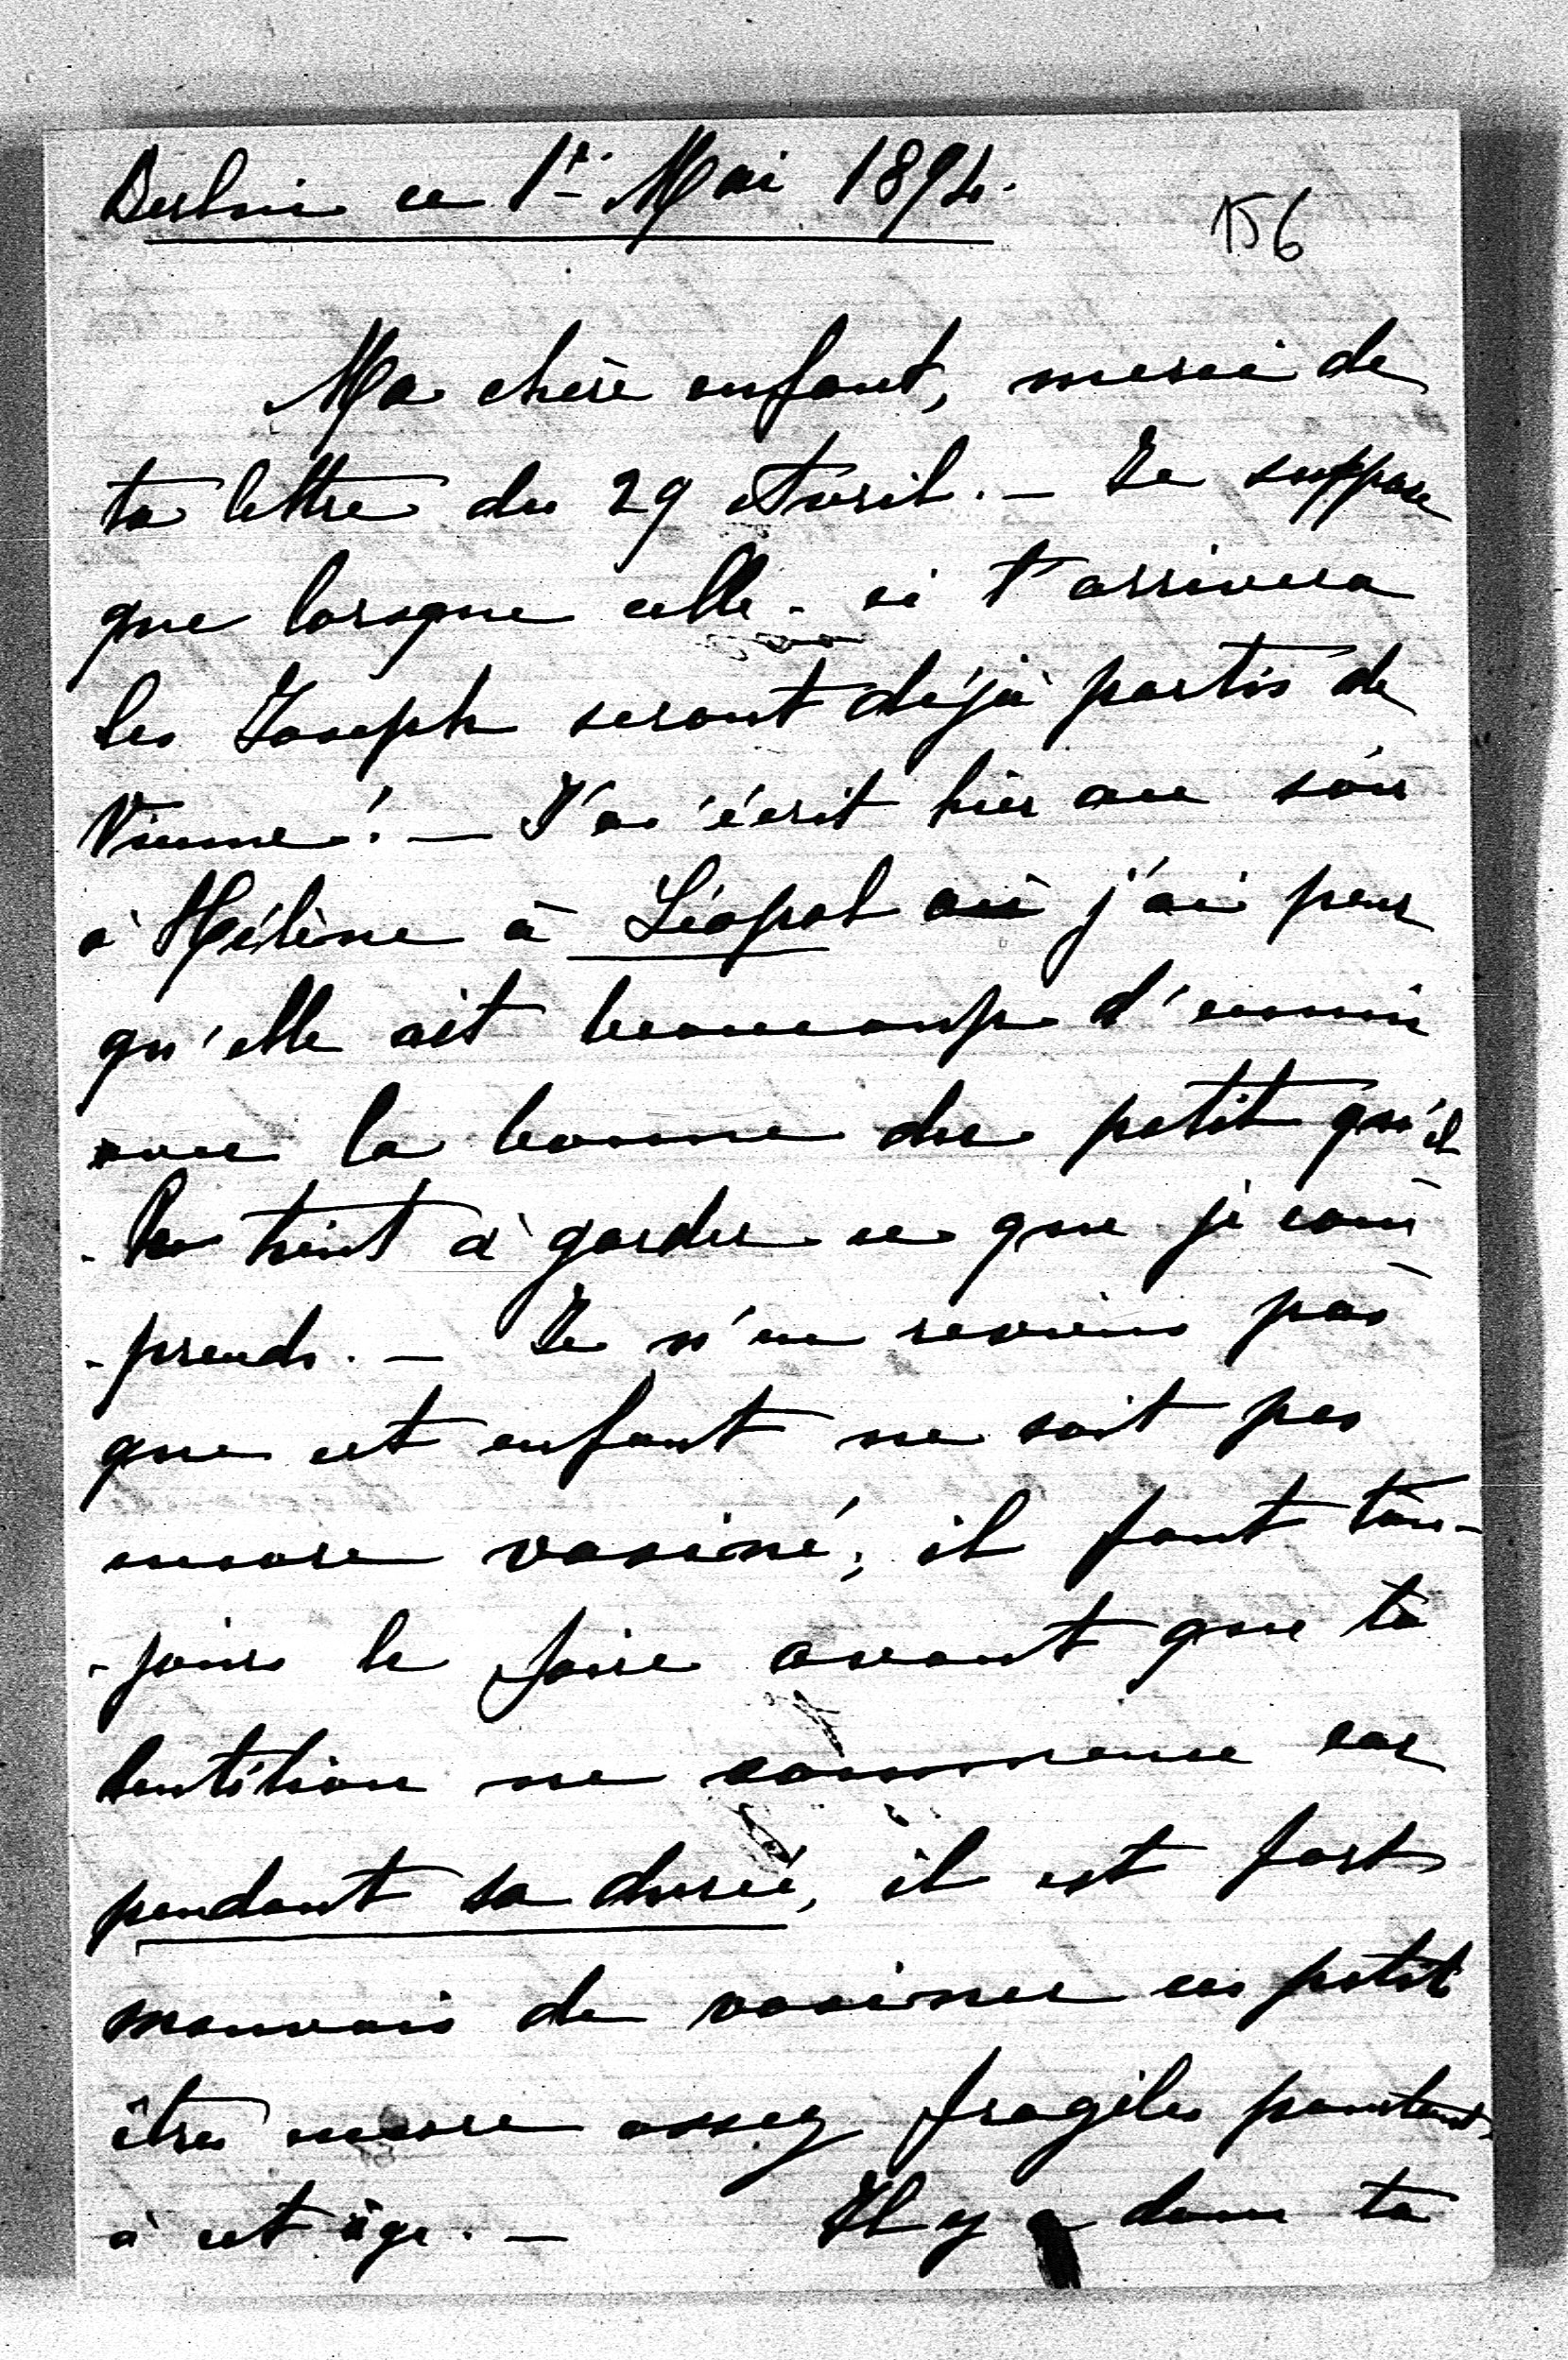 Berlin ce 1er Mai 1894.
156
Ma chère enfant, merci de
ta lettre du 29 Avril. — Je suppose
que lorsque celle-ci t'arrivera
les Joseph seront déjà partis de
Vienne! — J'ai écrit hier au soir
à Hélène à Léopol où j'ai peur
qu'elle ait beaucoup d'ennui
avec la bonne du petit qu'el
-le tient à garder ce que je com
-prends. — Je n'en reviens pas
que cet enfant ne soit pas
encore vaciné; il faut tou-
-jours le faire avant que la
dentition ne commence car
pendant sa durée, il est fort
mauvais de vaciner ces petits
êtres encore assez fragiles pourtant
à cet âge. — Il y a dans ta